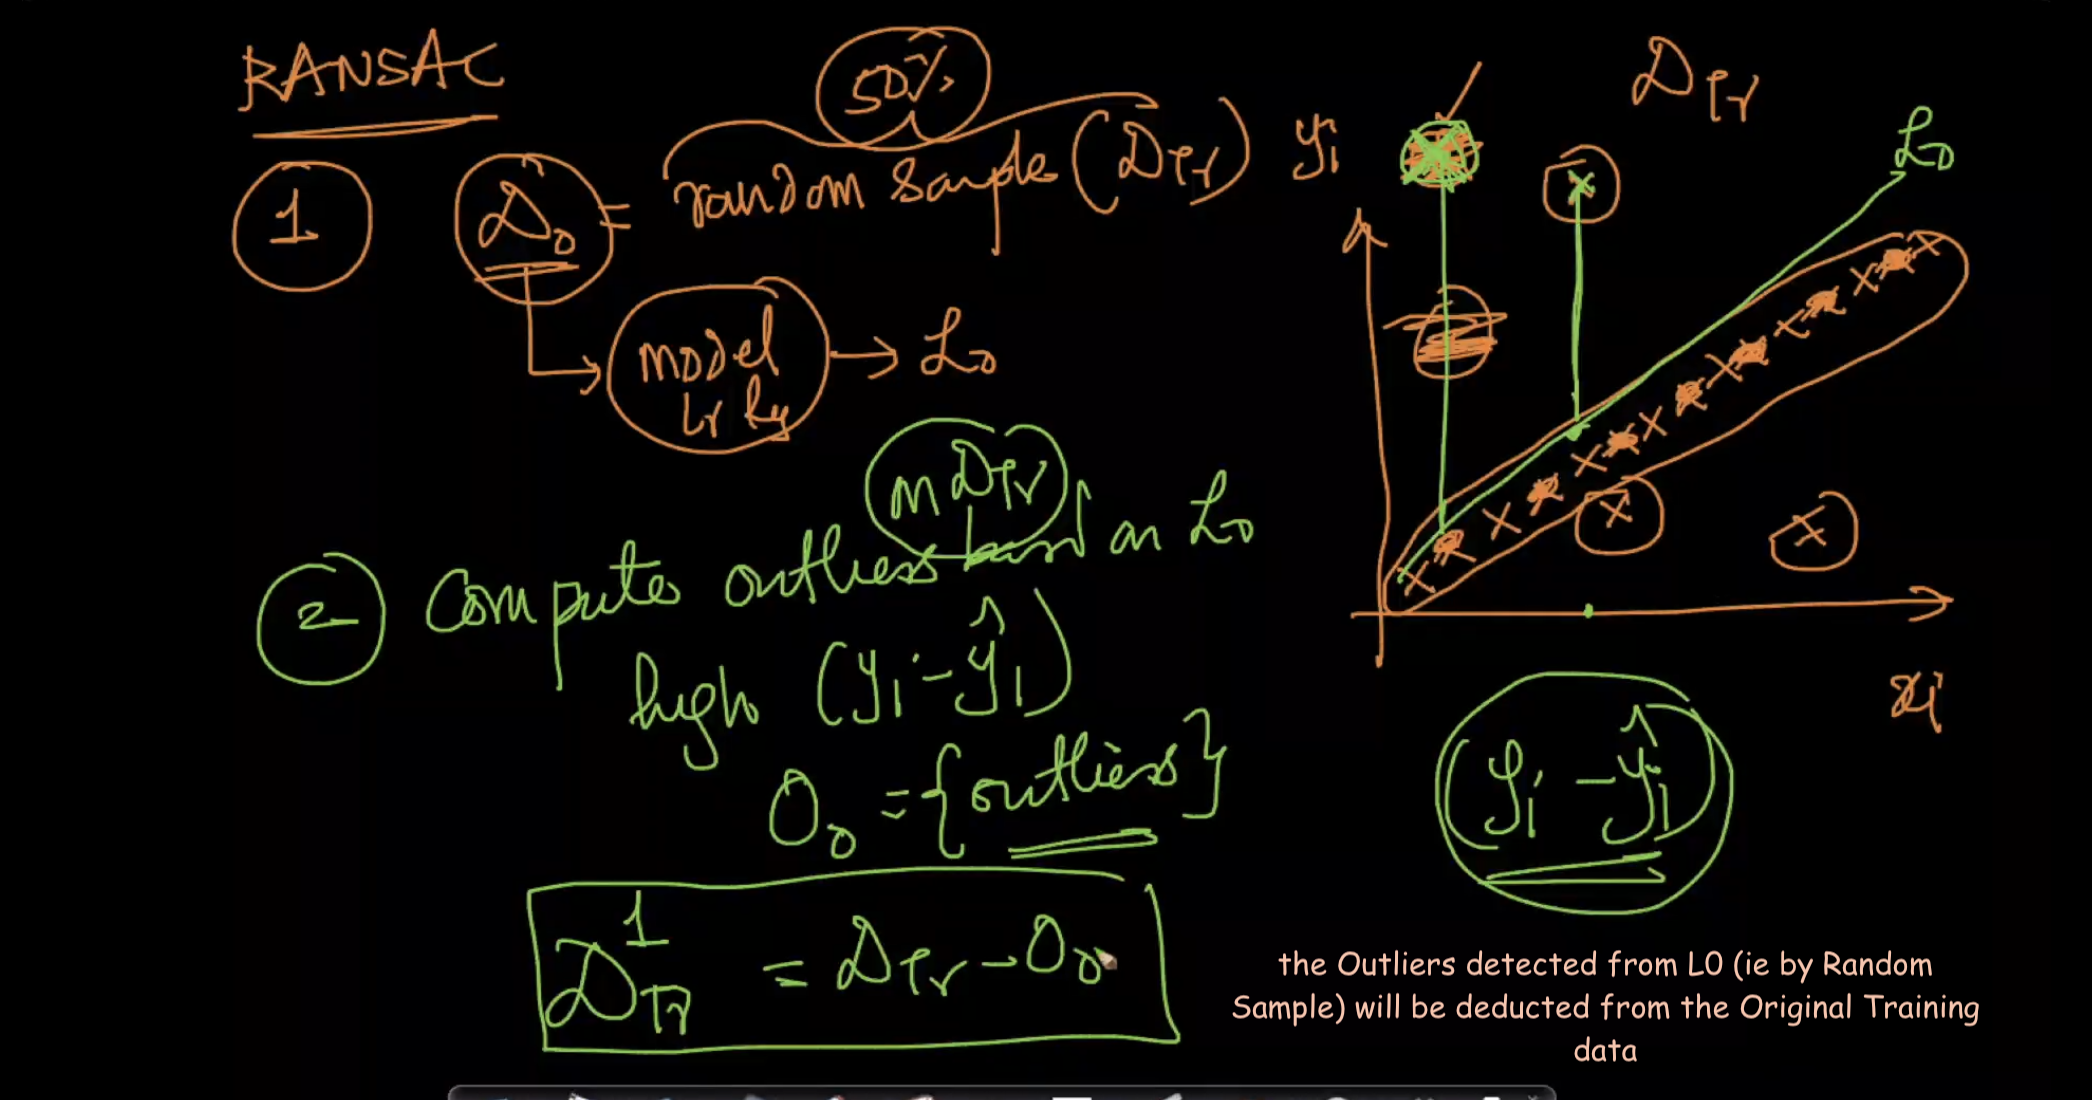 RANSAC
50%
1
D₀ = random Sample (D_Tr)
model
Lr Reg
→ L₀
m D_Tr
2 Compute outliers based on L₀
high (yᵢ - ŷᵢ)
O₀ = {outliers}
D¹_Tr = D_Tr - O₀
D_Tr
yᵢ
L₀
xᵢ
(yᵢ - ŷᵢ)
the Outliers detected from L0 (ie by Random
Sample) will be deducted from the Original Training
data